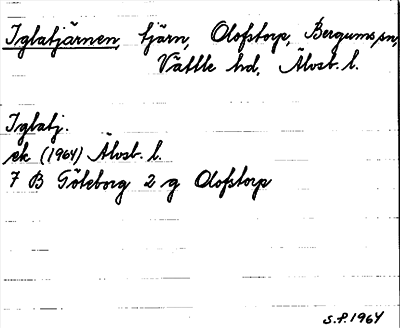 Iglatjärnen, tjärn, Olofstorp, Bergums sn,
Vättle hd, Älvsb. l.
Iglatj.
ek (1964) Älvsb. l.
7 B Göteborg 2 g Olofstorp
S.P. 1964